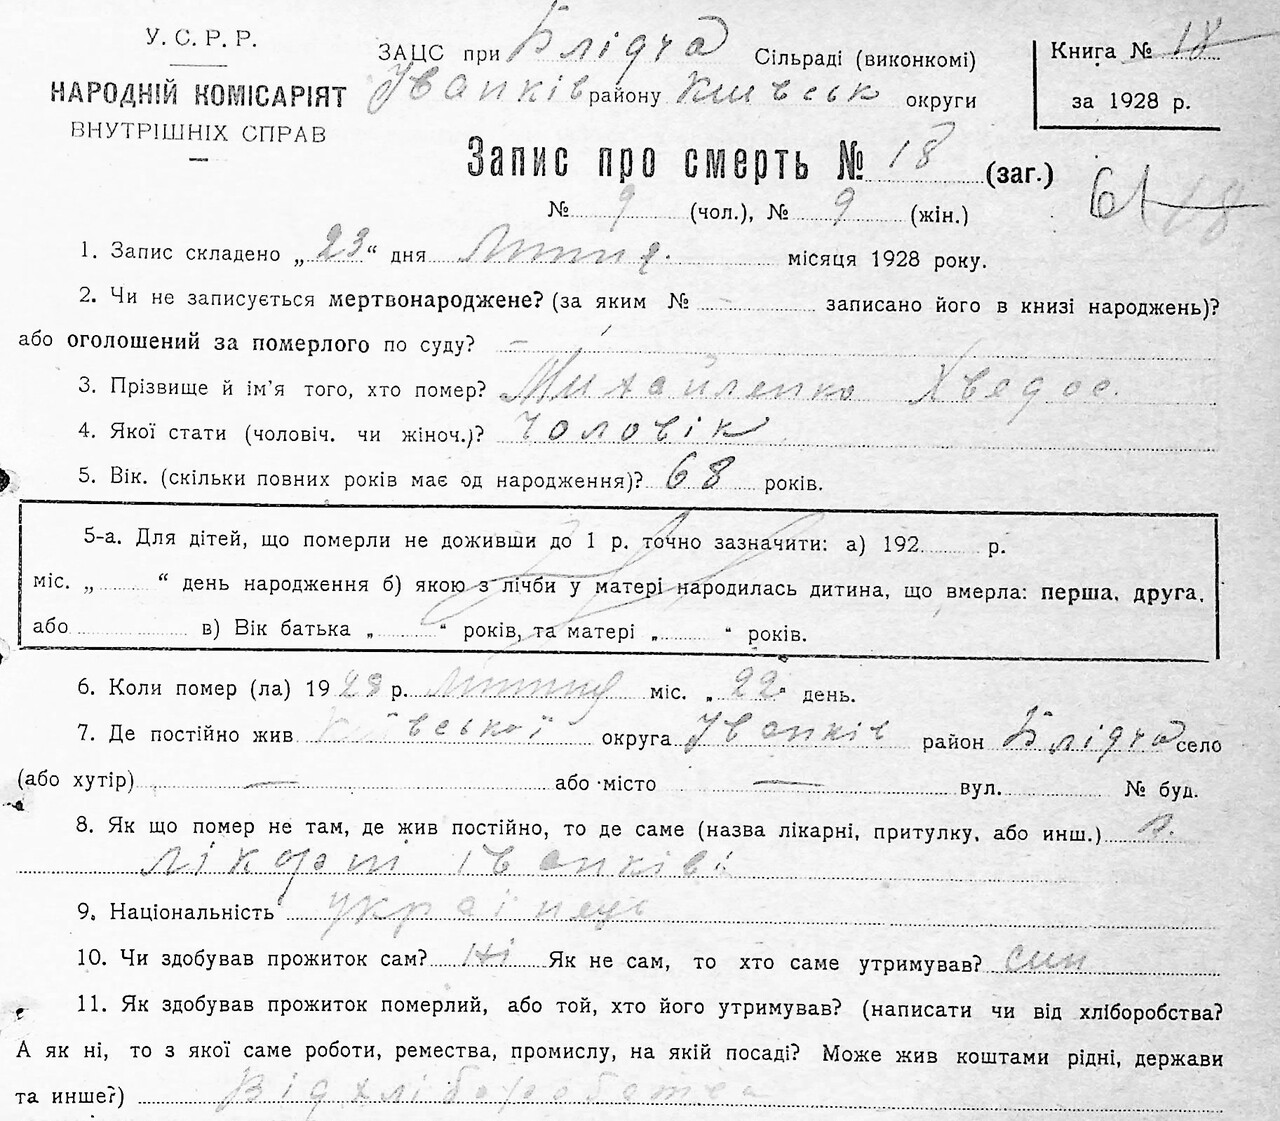 У. С. Р. Р.
НАРОДНІЙ КОМІСАРІЯТ
ВНУТРІШНІХ СПРАВ
ЗАЦС при Блідча Сільраді (виконкомі)
Іванків району Київськ округи
Книга № IX
за 1928 р.
Запис про смерть № 18 (заг.)
№ 9 (чол.), № 9 (жін.)
61 18
1. Запис складено „ 23 “ дня Липня місяця 1928 року.
2. Чи не записується мертвонароджене? (за яким № – записано його в книзі народжень)?
або оголошений за померлого по суду? –
3. Прізвище й ім'я того, хто помер? Михайленко Хведос.
4. Якої стати (чоловіч. чи жіноч.)? Чоловік
5. Вік. (скільки повних років має од народження)? 68 років.
5-а. Для дітей, що померли не доживши до 1 р. точно зазначити: а) 192 р.
міс. „ “ день народження б) якою з лічби у матері народилась дитина, що вмерла: перша, друга,
або в) Вік батька „ “ років, та матері „ “ років.
6. Коли помер (ла) 1928 р. Липня міс. „ 22 “ день.
7. Де постійно жив Київської округа Іванків район Блідча село
(або хутір) — або місто — вул. № буд.
8. Як що помер не там, де жив постійно, то де саме (назва лікарні, притулку, або инш.) В.
Лікарні Іванків
9. Національність українець
10. Чи здобував прожиток сам? Ні Як не сам, то хто саме утримував? син
11. Як здобував прожиток померлий, або той, хто його утримував? (написати чи від хліборобства?
А як ні, то з якої саме роботи, ремества, промислу, на якій посаді? Може жив коштами рідні, держави
та инше?) Від хліборобства